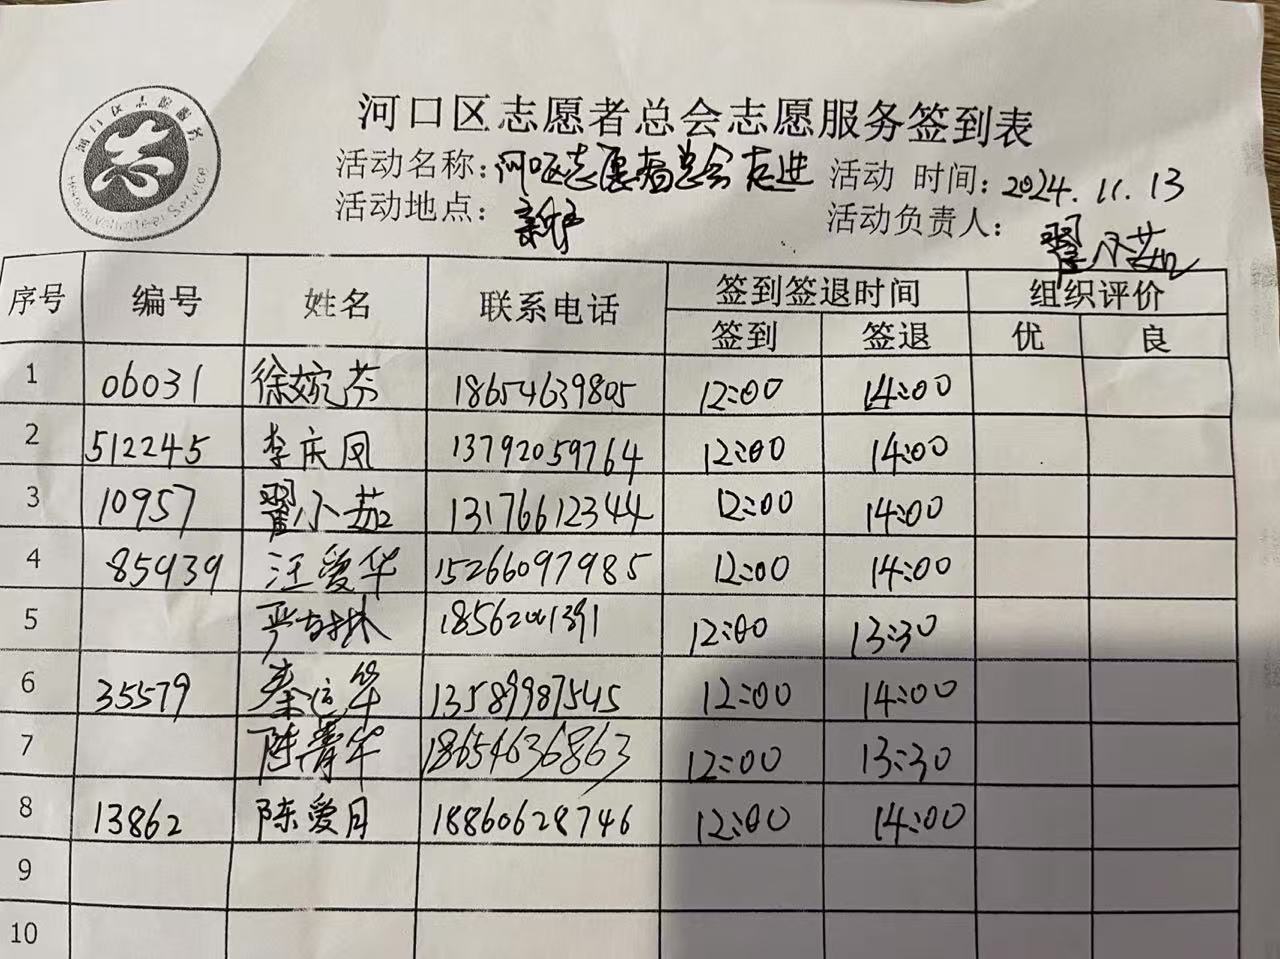 河口区志愿服务
Hekou Volunteer Service
河口区志愿者总会志愿服务签到表
活动名称:河口区志愿者总会走进 活动 时间:2024.11.13
活动地点: 活动负责人: 翟小茹
序号 编号 姓名 联系电话 签到签退时间 组织评价
签到 签退 优 良
1 06031 徐婉芬 18654639805 12:00 14:00
2 512245 李庆凤 13792059764 12:00 14:00
3 10957 翟小茹 13176612344 12:00 14:00
4 85939 汪爱华 15266097985 12:00 14:00
5 严 林 12:00 13:30
6 35579 秦运华 13589987545 12:00 14:00
7 陈菁华 18654636863 12:00 13:30
8 13862 陈爱月 18860628746 12:00 14:00
9
10